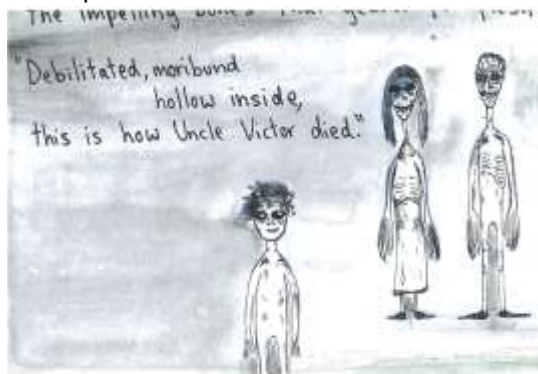 the impelling bones that
"Debilitated, moribund
hollow inside,
this is how Uncle Victor died."